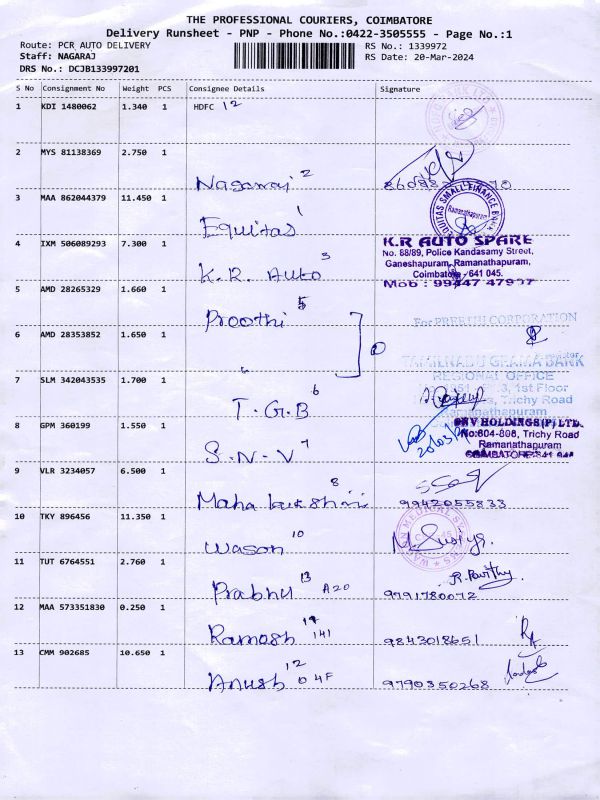 THE PROFESSIONAL COURIERS, COIMBATORE
Delivery Runsheet - PNP - Phone No.:0422-3505555 - Page No.:1
Route: PCR AUTO DELIVERY
Staff: NAGARAJ
DRS No.: DCJB133997201
RS No.: 1339972
RS Date: 20-Mar-2024
S No Consignment No Weight PCS Consignee Details Signature
1 KDI 1480062 1.340 1 HDFC 12
2 MYS 81138369 2.750 1
Nagaraj 2
3 MAA 862044379 11.450 1
EQUITAS SMALL FINANCE BANK
Ramanathapuram
Equitas 1
4 IXM 506089293 7.300 1
K.R AUTO SPARE
No. 88/89, Police Kandasamy Street,
Ganeshapuram, Ramanathapuram,
Coimbatore - 641 045.
Mob : 99447 47937
K.R. Auto 3
5 AMD 28265329 1.660 1
Preethi 5
For PREETHI CORPORATION
6 AMD 28353852 1.650 1
"
7 SLM 342043535 1.700 1
TAMILNADU GRAMA BANK
REGIONAL OFFICE
1st Floor
Trichy Road
Ramanathapuram
T.G.B 6
8 GPM 360199 1.550 1
SNV HOLDINGS(P)LTD.
No:804-806, Trichy Road
Ramanathapuram
20/03/24
S.N.V 7
9 VLR 3234057 6.500 1
Maha lakshmi 8 9942055833
10 TKY 896456 11.350 1
Wason 10
11 TUT 6764551 2.760 1
Prabhu 13 A20 9791780072
12 MAA 573351830 0.250 1
Ramesh 14 141 9843018651
13 CMM 902685 10.650 1
Anush 12 04F 9790350268